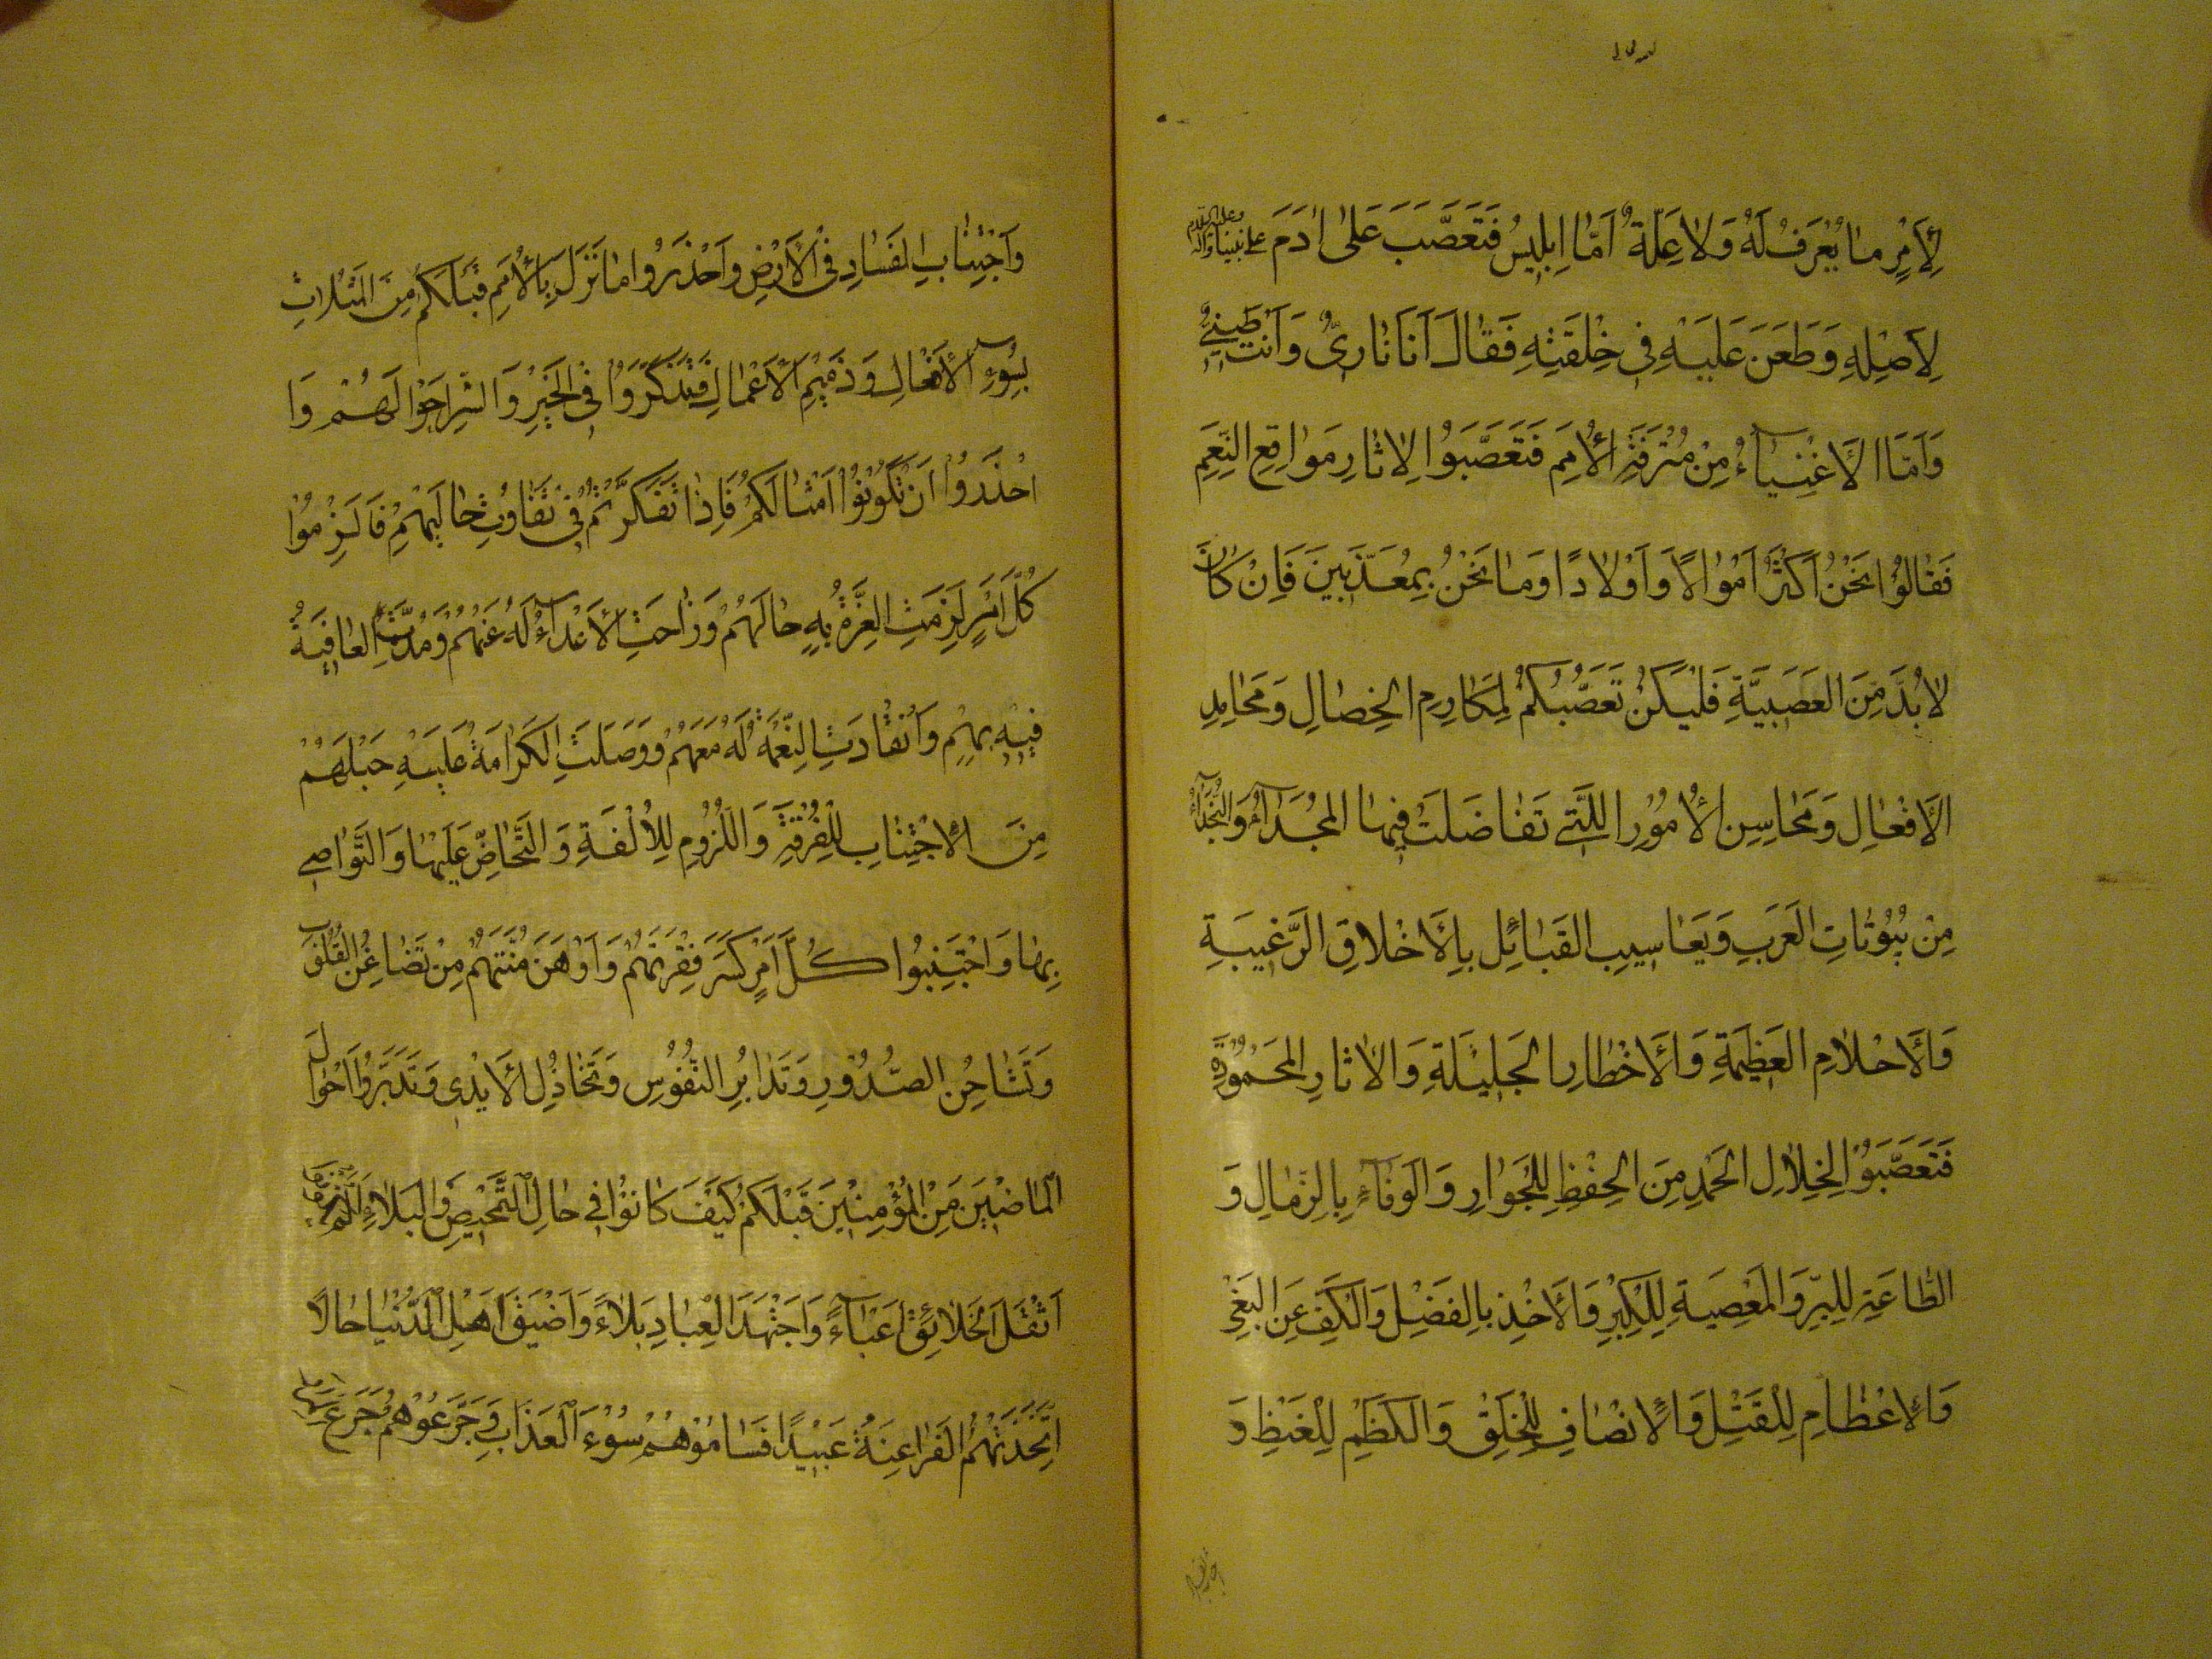 لِاَمْرٍ مٰا يُعْرَفُ لَهُ وَلاٰ عِلَّةٌ اَمّٰا اِبْلِيسُ فَتَعَصَّبَ عَلىٰ اٰدَمَ على نبينا وآله وعليه السلام
لِاَصْلِهِ وَطَعَنَ عَلَيْهِ فِى خِلْقَتِهِ فَقٰالَ اَنَا نٰارِىٌّ وَاَنْتَ طِينِىٌّ
وَاَمَّا الْاَغْنِيٰآءُ مِنْ مُتْرَفَةِ الْاُمَمِ فَتَعَصَّبَوُا لِاٰثٰارِ مَوٰاقِعِ النِّعَمِ
فَقٰالُوُا نَحْنُ اَكْثَرُ اَمْوٰالاً وَ اَوْلاٰدًا وَمٰا نَحْنُ بِمُعَذَّبِينَ فَاِنْ كٰانَ
لاٰبُدَّ مِنَ الْعَصَبِيَّةِ فَلْيَكُنْ تَعَصُّبُكُمْ لِمَكٰارِمِ الْخِصٰالِ وَمَحٰامِدِ
الْاَفْعٰالِ وَمَحٰاسِنِ الْاُمُوُرِ اللَّتِى تَفٰاضَلَتْ فِيهٰا الْمُجَدٰآءُ وَالنُّجَدٰآءُ
مِنْ بُيُوُتٰاتِ الْعَرَبِ وَيَعٰاسِيبِ القَبٰائِلِ بِالْاَخْلاٰقِ الرَّغِيبَةِ
وَالْاَحْلاٰمِ الْعَظِيمَةِ وَالْاَخْطٰارِ الْجَلِيلَةِ وَالْاٰثٰارِ الْمَحْمُوُدَةِ
فَتَعَصَّبَوُا لِخِلاٰلِ الْحَمْدِ مِنَ الْحِفْظِ لِلْجِوٰارِ وَالْوَفٰآءِ بِالذِّمٰامِ وَ
الطّٰاعَةِ لِلْبِرِّ وَالْمَعْصِيَةِ لِلْكِبْرِ وَالْاَخْذِ بِالْفَضْلِ وَالْكَفِّ عَنِ الْبَغْىِ
وَالْاِعْظٰامِ لِلْقَتْلِ وَالْاِنْصٰافِ لِلْخَلْقِ وَالْكَظْمِ لِلْغَيْظِ وَ
وَاجْتِنٰابِ الْفَسٰادِ فِى الْاَرْضِ وَاحْذَرُوا مٰا نَزَلَ بِالْاُمَمِ قَبْلَكُمْ مِنَ الْمَثُلاٰتِ
بِسُوُءِ الْاَفْعٰالِ وَذَمِيمِ الْاَعْمٰالِ فَتَذَكَّرُوُا فِى الْخَيْرِ وَالشَّرِ اَحْوٰالَهُمْ وَا
احْذَرُوُا اَنْ تَكُوُنُوُا اَمْثٰالَكُمْ فَاِذٰا تَفَكَّرْتُمْ فِى تَفٰاوُتِ حٰالَيْهِمْ فَالْزِمُوُا
كُلَّ اَمْرٍ لَزِمَتِ الْعِزَّةُ بِهِ حٰالَهُمْ وَزٰاحَتِ الْاَعْدٰآءُ لَهُ عَنْهُمْ وَمُدَّتِ الْعٰافِيَةُ
فِيهِ بِهِمْ وَانْقٰادَتِ النِّعْمَةُ لَهُ مَعَهُمْ وَوَصَلَتِ الْكَرٰامَةُ عَلَيْهِ حَبْلَهُمْ
مِنَ الْاِجْتِنٰابِ لِلْفُرْقَةِ وَاللُّزُوُمِ لِلْاُلْفَةِ وَالتَّحٰاضِّ عَلَيْهٰا وَالتَّوٰاصِى
بِهٰا وَاجْتَنِبُوا كُلَّ اَمْرٍ كَسَرَ فِقْرَتَهُمْ وَاَوْهَنَ مُنَّتَهُمْ مِنْ تَضٰاغُنِ الْقُلُوُبِ
وَتَشٰاحُنِ الصُّدُوُرِ وَتَدٰابُرِ النُّفُوُسِ وَتَخٰاذُلِ الْاَيْدِى وَتَدَبَّرُوُا اَحْوٰالَ
الْمٰاضِينَ مِنَ الْمُؤْمِنِينَ قَبْلَكُمْ كَيْفَ كٰانُوُا فِى حٰالِ التَّمْحِيصِ وَالْبَلاٰءِ اَلَمْ يَكُونُوا
اَثْقَلَ الْخَلاٰئِقِ اَعْبٰآءً وَاَجْهَدَ الْعِبٰادِ بَلاٰءً وَاَضْيَقَ اَهْلِ الدُّنْيٰا حٰالاً
اِتَّخَذَتْهُمُ الْفَرٰاعِنَةُ عَبِيدًا فَسٰامُوُهُمْ سُوُءَ الْعَذٰابِ وَجَرَّعُوُهُمْ جُرَعَ